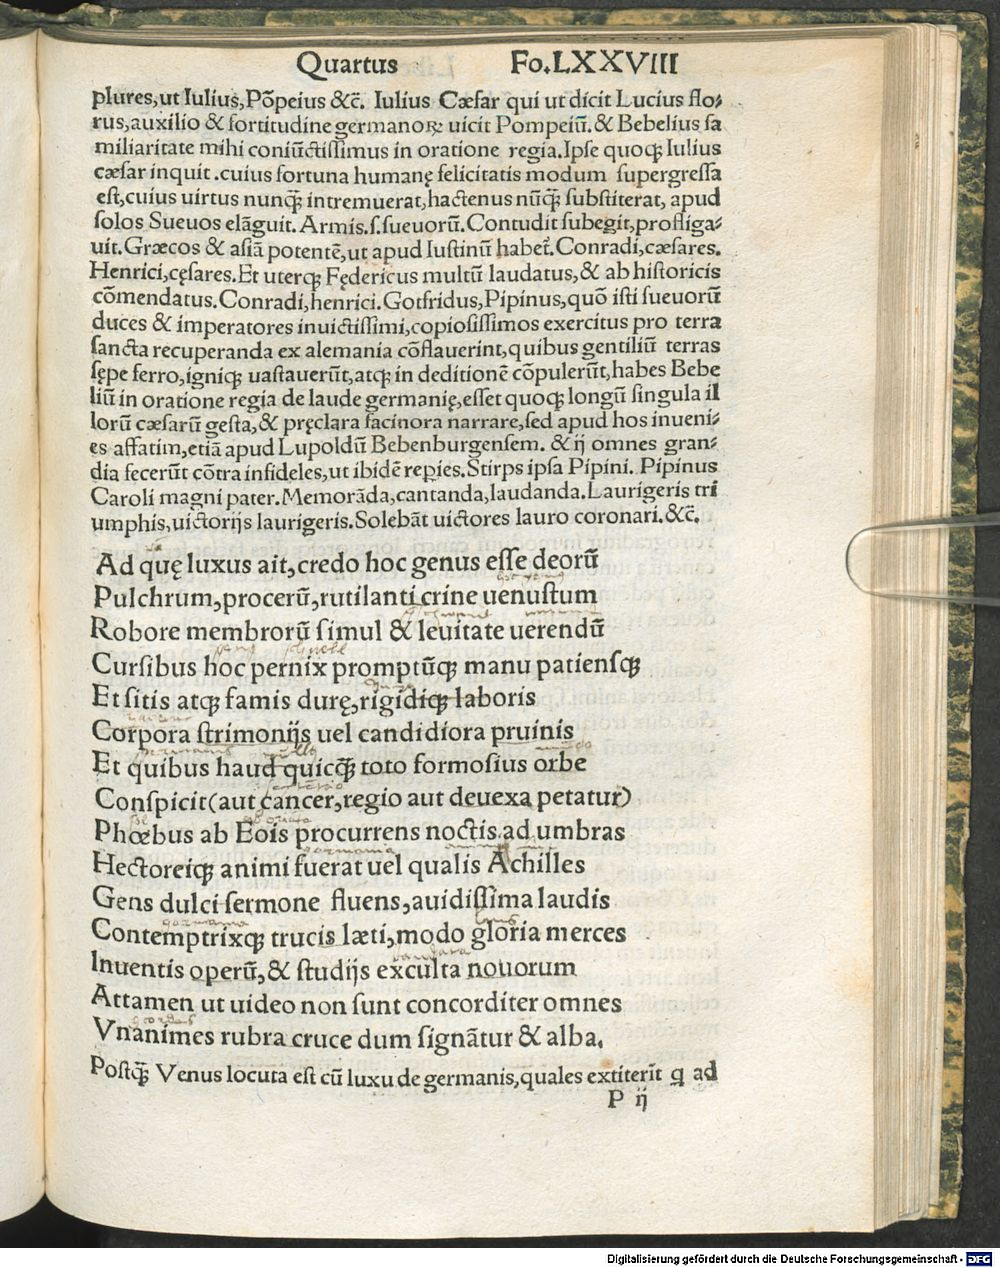 Quartus Fo.LXXVIII
plures,ut Iulius,Põpeius &c̃. Iulius Cæsar qui ut dicit Lucius flo-
rus,auxilio & fortitudine germanoꝝ uicit Pompeiũ.& Bebelius fa
miliaritate mihi coniũctissimus in oratione regia.Ipse quoqꝫ Iulius
cæsar inquit.cuius fortuna humanę felicitatis modum supergressa
est,cuius uirtus nunqꝫ̃ intremuerat,hactenus nũqꝫ̃ substiterat, apud
solos Sueuos elãguit.Armis.s.sueuorũ.Contudit subegit,profliga-
uit.Græcos & asiã potentẽ,ut apud Iustinũ habet̃.Conradi,cæsares.
Henrici,cęsares.Et uterqꝫ Fędericus multũ laudatus,& ab historicis
cõmendatus.Conradi,henrici.Gotfridus,Pipinus,quõ isti sueuorũ
duces & imperatores inuictissimi,copiosissimos exercitus pro terra
sancta recuperanda ex alemania cõflauerint,quibus gentiliũ terras
sępe ferro,igniqꝫ uastauerũt,atqꝫ in deditionẽ cõpulerũt,habes Bebe
liũ in oratione regia de laude germanię,esset quoqꝫ longũ singula il
lorũ cæsarũ gesta,& pręclara facinora narrare,sed apud hos inueni-
es affatim,etiã apud Lupoldũ Bebenburgensem. & ij omnes gran-
dia fecerũt cõtra infideles,ut ibidẽ repies.Stirps ipsa Pipini. Pipinus
Caroli magni pater.Memorãda,cantanda,laudanda.Laurigeris tri
umphis,uictorijs laurigeris.Solebãt uictores lauro coronari.&c̃.
Ad quę luxus ait,credo hoc genus esse deorũ
Pulchrum,procerũ,rutilanti crine uenustum
Robore membrorũ simul & leuitate uerendũ
Cursibus hoc pernix promptũqꝫ manu patiensqꝫ
Et sitis atqꝫ famis durę,rigidiqꝫ laboris
Corpora strimonijs uel candidiora pruinis
Et quibus haud quicqꝫ̃ toto formosius orbe
Conspicit(aut cancer,regio aut deuexa petatur)
Phœbus ab Eois procurrens noctis ad umbras
Hectoreiqꝫ animi fuerat uel qualis Achilles
Gens dulci sermone fluens,auidissima laudis
Contemptrixqꝫ trucis læti,modo gloria merces
Inuentis operũ,& studijs exculta nouorum
Attamen ut uideo non sunt concorditer omnes
Vnanimes rubra cruce dum signãtur & alba.
Postqꝫ̃ Venus locuta est cũ luxu de germanis,quales extiterĩt q ad
P ij
Digitalisierung gefördert durch die Deutsche Forschungsgemeinschaft - DFG